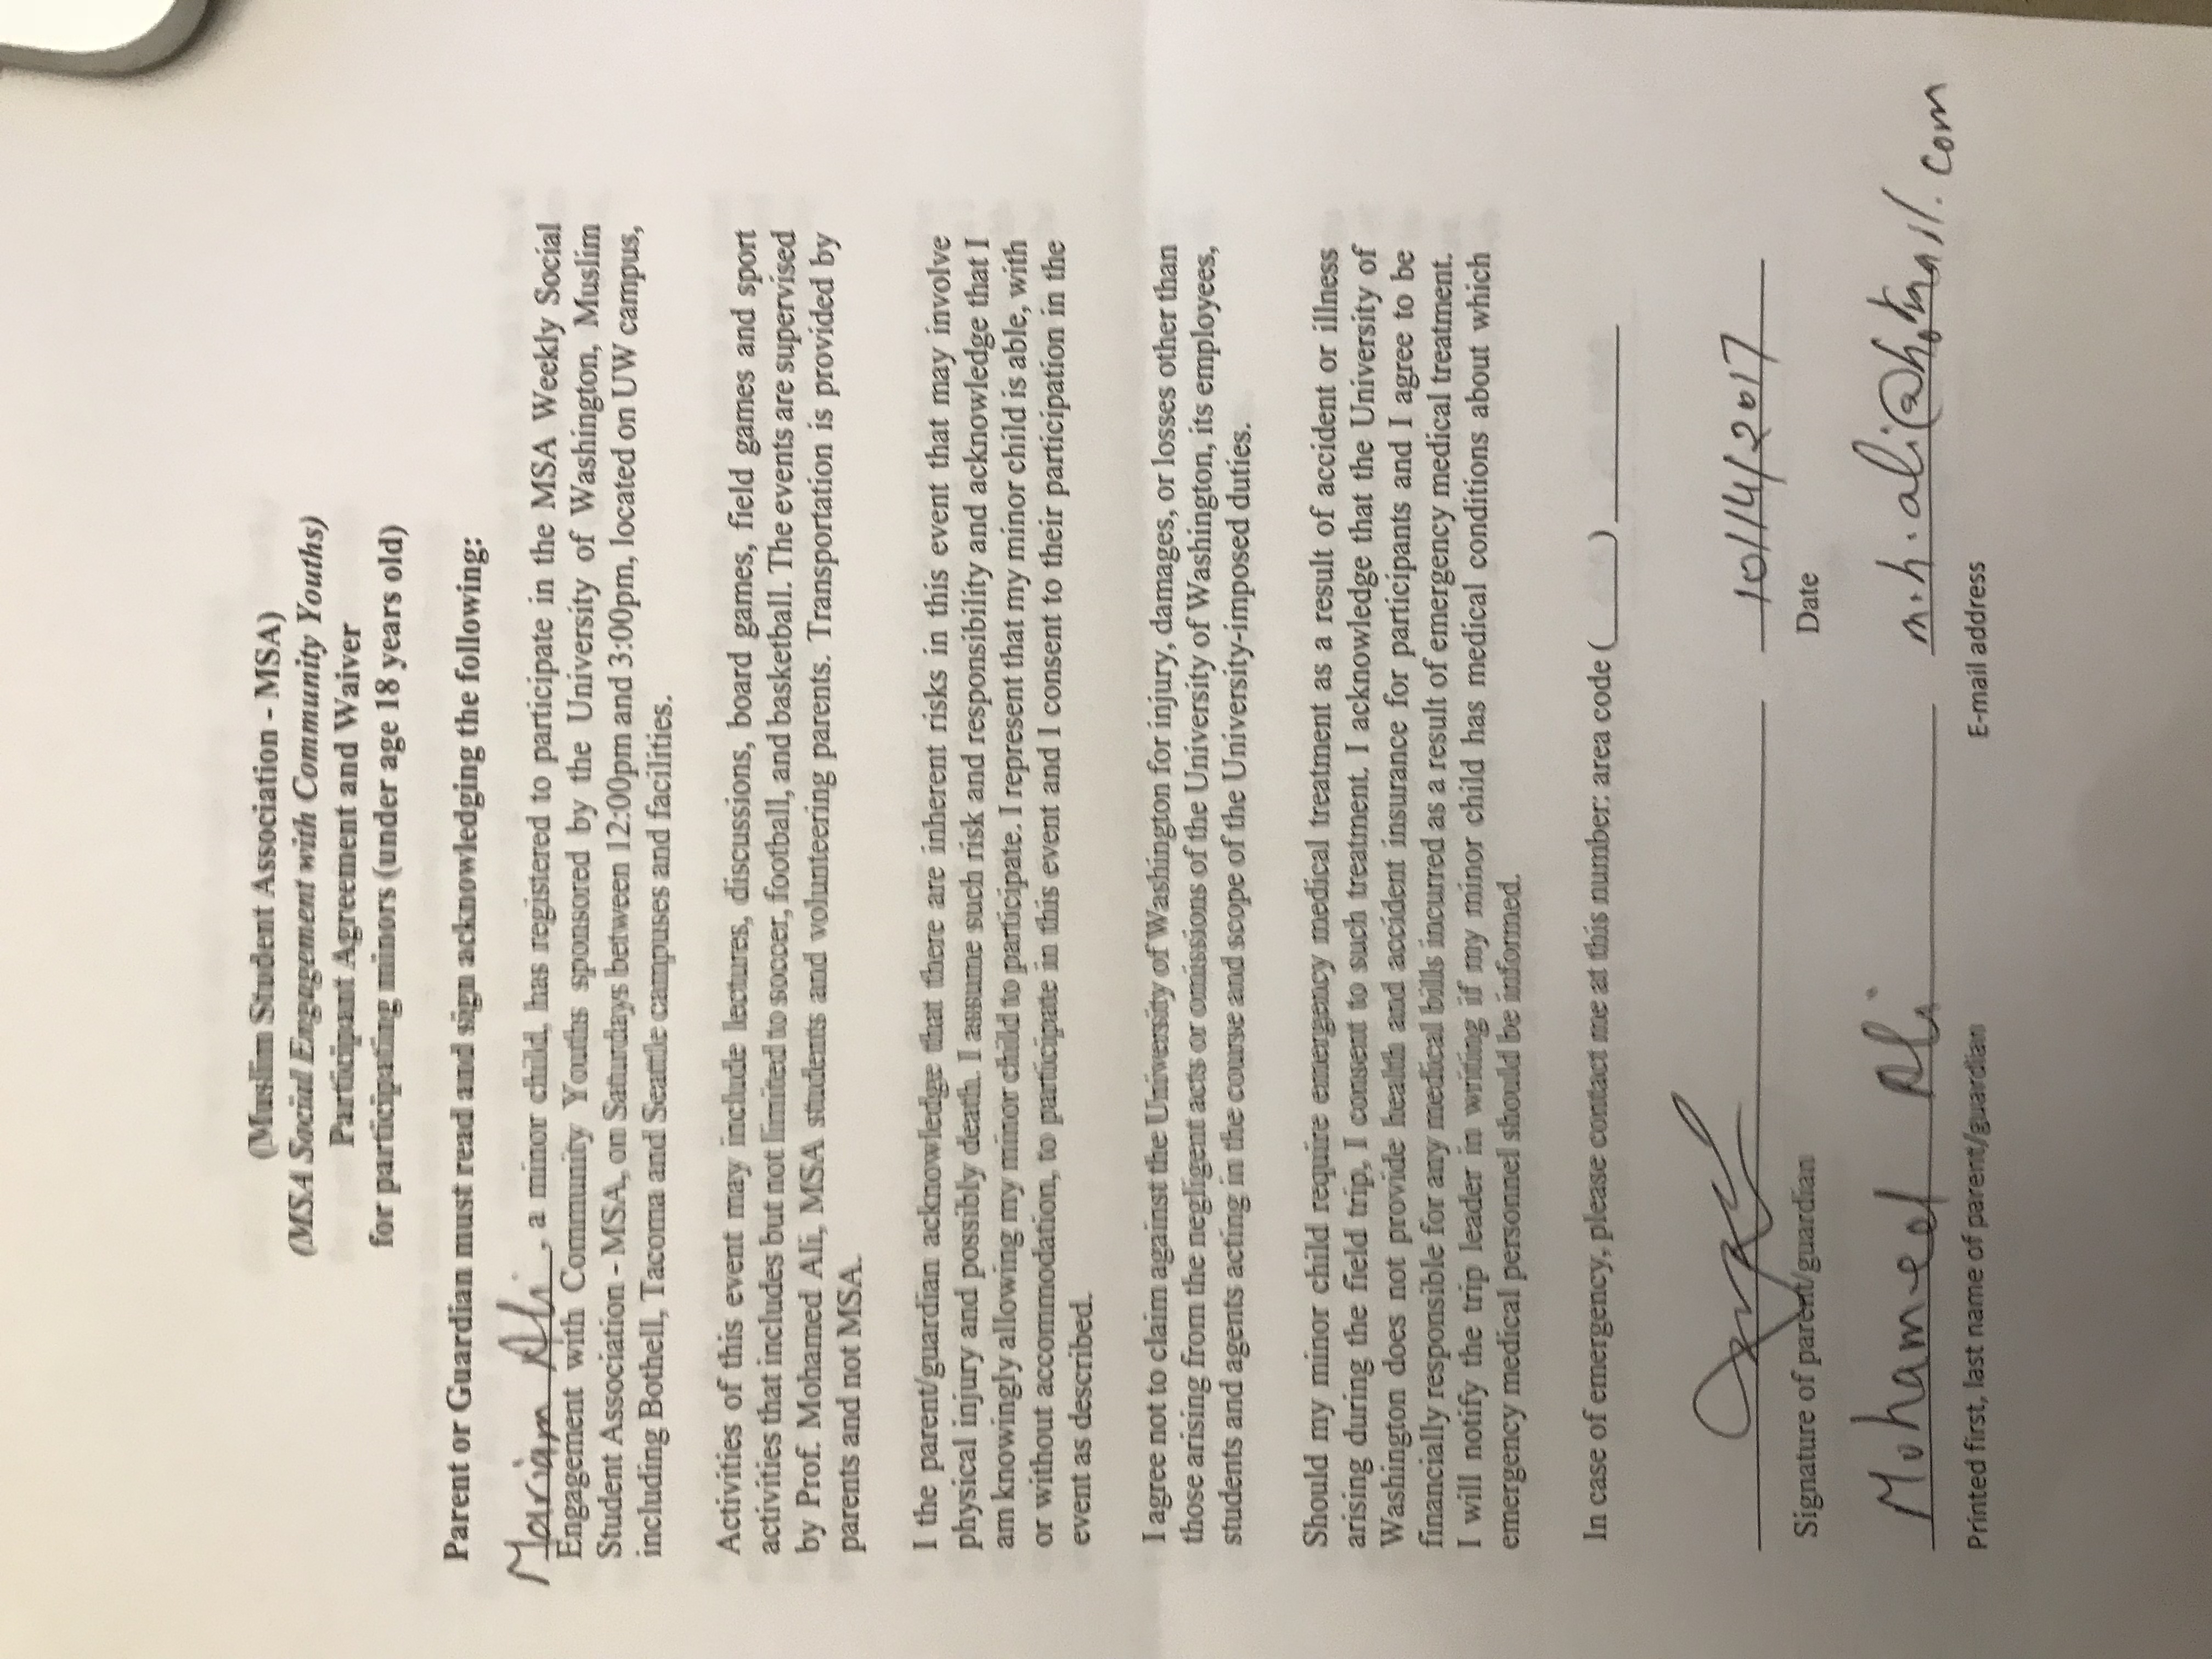 (Muslim Student Association - MSA)
(MSA Social Engagement with Community Youths)
Participant Agreement and Waiver
for participating minors (under age 18 years old)
Parent or Guardian must read and sign acknowledging the following:
Mariam Ali, a minor child, has registered to participate in the MSA Weekly Social
Engagement with Community Youths sponsored by the University of Washington, Muslim
Student Association - MSA, on Saturdays between 12:00pm and 3:00pm, located on UW campus,
including Bothell, Tacoma and Seattle campuses and facilities.
Activities of this event may include lectures, discussions, board games, field games and sport
activities that includes but not limited to soccer, football, and basketball. The events are supervised
by Prof. Mohamed Ali, MSA students and volunteering parents. Transportation is provided by
parents and not MSA.
I the parent/guardian acknowledge that there are inherent risks in this event that may involve
physical injury and possibly death. I assume such risk and responsibility and acknowledge that I
am knowingly allowing my minor child to participate. I represent that my minor child is able, with
or without accommodation, to participate in this event and I consent to their participation in the
event as described.
I agree not to claim against the University of Washington for injury, damages, or losses other than
those arising from the negligent acts or omissions of the University of Washington, its employees,
students and agents acting in the course and scope of the University-imposed duties.
Should my minor child require emergency medical treatment as a result of accident or illness
arising during the field trip, I consent to such treatment. I acknowledge that the University of
Washington does not provide health and accident insurance for participants and I agree to be
financially responsible for any medical bills incurred as a result of emergency medical treatment.
I will notify the trip leader in writing if my minor child has medical conditions about which
emergency medical personnel should be informed.
In case of emergency, please contact me at this number: area code (_____) __________
10/14/2017
Signature of parent/guardian Date
Mohamed Ali m.h.ali@hotmail.com
Printed first, last name of parent/guardian E-mail address